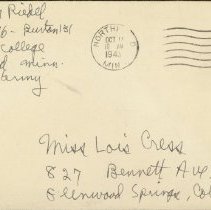 Riebel
6 - Burton 131
College
Minn.
NORTHF
OCT 11
194
MIN
Miss Lois Cress
827 Bennett Ave,
Glenwood Springs, Col